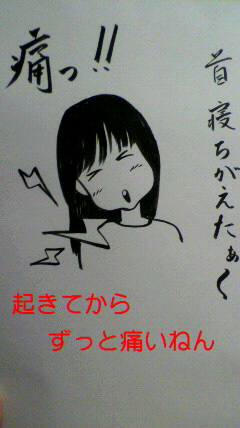 痛っ!!
首寝ちがえたぁ〜
起きてから
ずっと痛いねん